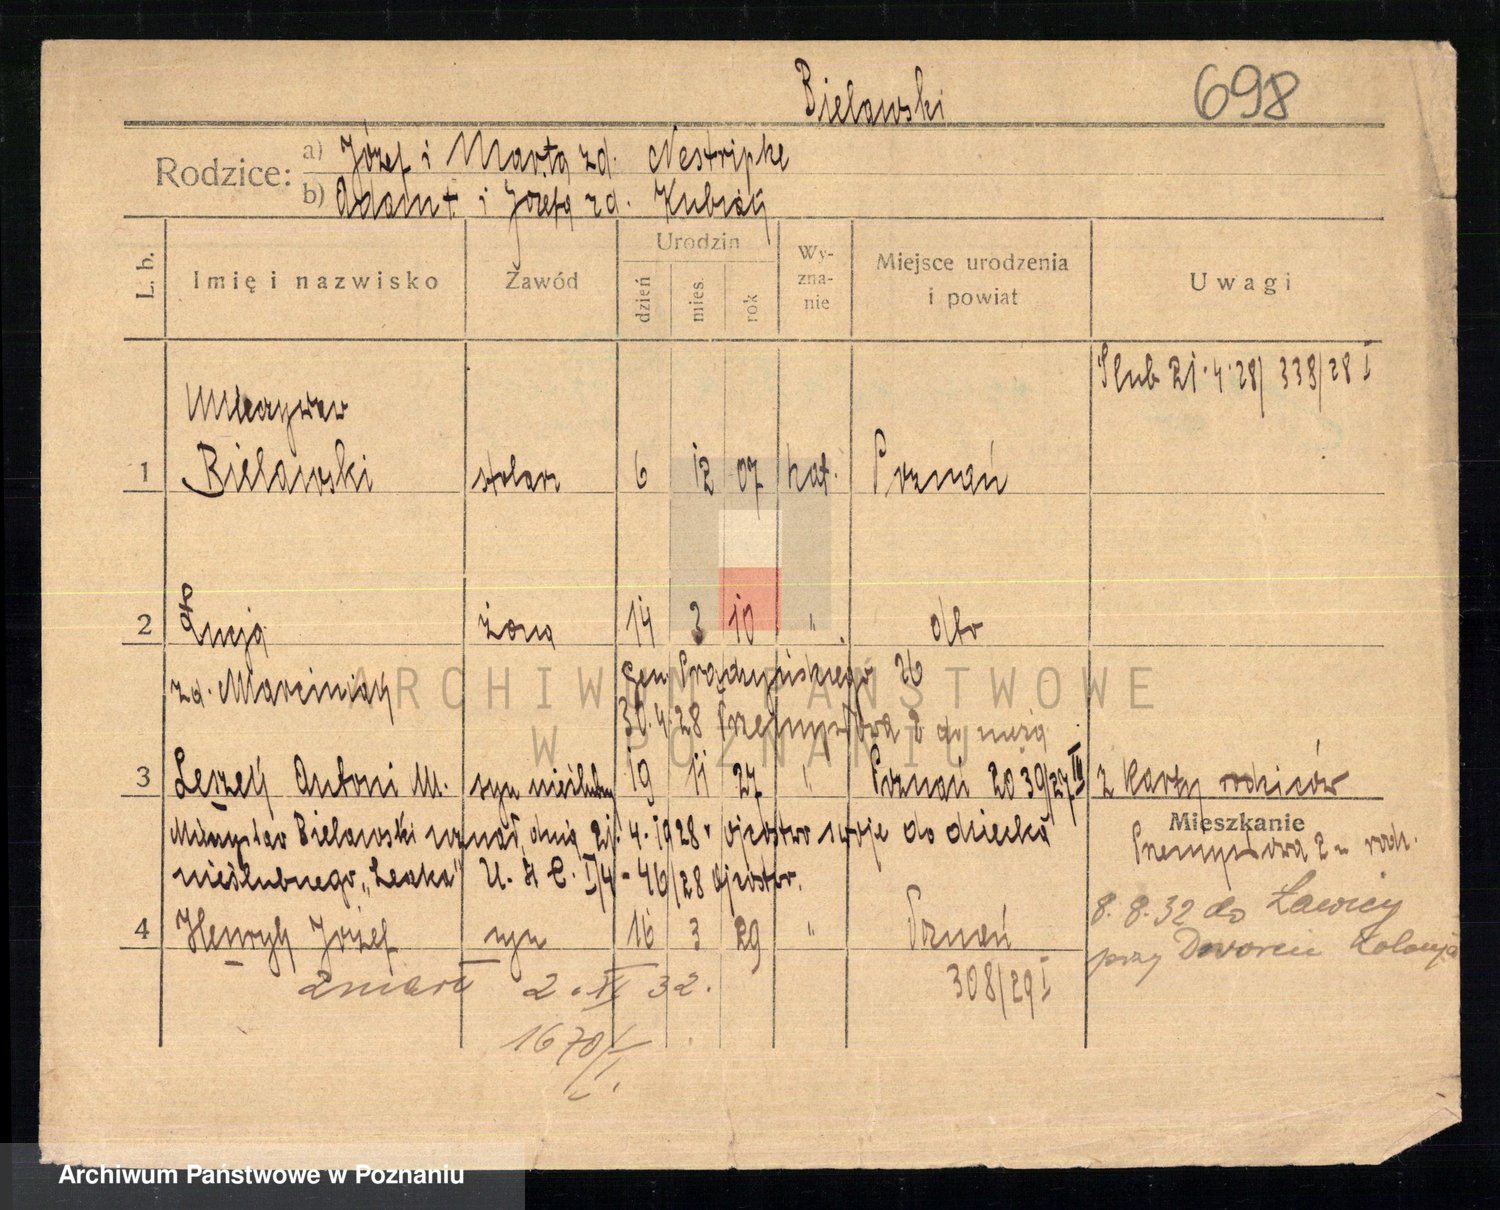 Bielawski 698
Rodzice: a) Józef i Marta zd. Nestripke
b) Adam † i Józefa zd. Kubiak
L. b. Imię i nazwisko Zawód Urodzin Wy-zna-nie Miejsce urodzenia i powiat Uwagi
dzień mies. rok
Ślub 21.4.28/ 338/28 I
Mieczysław
1 Bielawski stolarz 6 12 07 kat. Poznań
2 Łucja żona 14 3 10 " dto
zd. Marciniak Gen. Prądzyńskiego 26
30.4.28 Przemysłowa 2 do męża
3 Leszek Antoni M. syn nieślubny 19 11 27 " Poznań 2039/27 III 2 karty rodziców
Mieczysław Bielawski uznał dnia 21.4.1928 ojcostwo swoje do dziecka
Mieszkanie
Przemysłowa 2 rodz.
nieślubnego "Leszka" U. S. C. I/4 - 46/28 ojcostw.
8.8.32 do Ławicy
4 Henryk Józef syn 16 3 29 " Poznań
przy Dworcu Kolonja
zmarł 2.XI 32. 308/29 I
1670/I.
ARCHIWUM PAŃSTWOWE
W POZNANIU
Archiwum Państwowe w Poznaniu